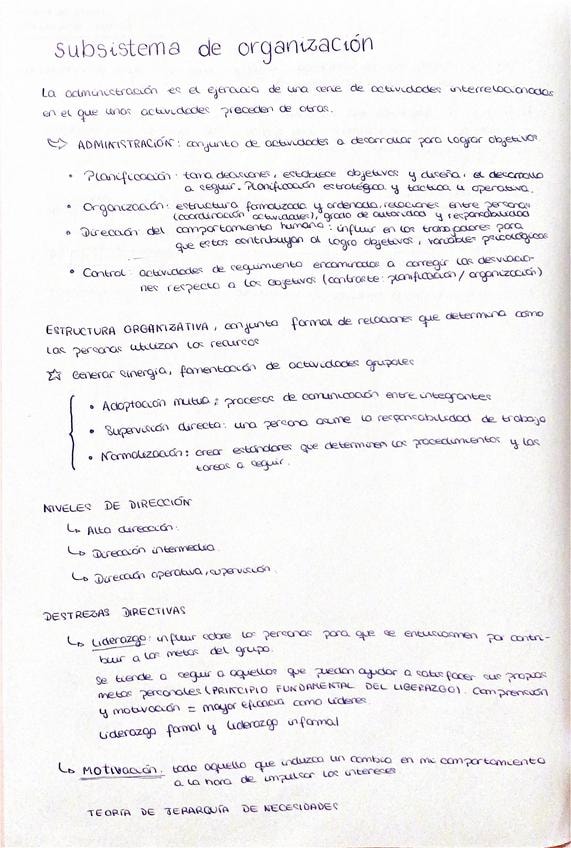 Subsistema de organización
La administración es el ejercicio de una serie de actividades interrelacionadas
en el que unas actividades preceden de otras.
ADMINISTRACIÓN: conjunto de actividades a desarrollar para lograr objetivos.
• Planificación: toma decisiones, establece objetivos y diseña, el desarrollo
a seguir. Planificación estratégica y táctica u operativa.
• Organización: estructura formalizada y ordenada, relaciones entre personas
(coordinación actividades), grado de autoridad y responsabilidad
• Dirección del comportamiento humano: influir en los trabajadores para
que estos contribuyan al logro objetivos, variables psicológicas
• Control: actividades de seguimiento encaminadas a corregir las desviacio-
nes respecto a los objetivos (contraste: planificación / organización)
ESTRUCTURA ORGANIZATIVA, conjunto formal de relaciones que determina como
las personas utilizan los recursos
☆ Generar sinergia, fomentación de actividades grupales
• Adaptación mutua: procesos de comunicación entre integrantes
• Supervisión directa: una persona asume la responsabilidad de trabajo
• Normalización: crear estándares que determinen los procedimientos y las
tareas a seguir.
NIVELES DE DIRECCIÓN
↳ Alta dirección.
↳ Dirección intermedia.
↳ Dirección operativa, supervisión.
DESTREZAS DIRECTIVAS
↳ Liderazgo: influir sobre las personas para que se entusiasmen por contri-
buir a las metas del grupo.
Se tiende a seguir a aquellos que puedan ayudar a satisfacer sus propias
metas personales (PRINCIPIO FUNDAMENTAL DEL LIDERAZGO). Comprensión
y motivación = mayor eficacia como líderes.
Liderazgo formal y liderazgo informal
↳ MOTIVACIÓN: todo aquello que induzca un cambio en mi comportamiento
a la hora de impulsar los intereses
TEORÍA DE JERARQUÍA DE NECESIDADES